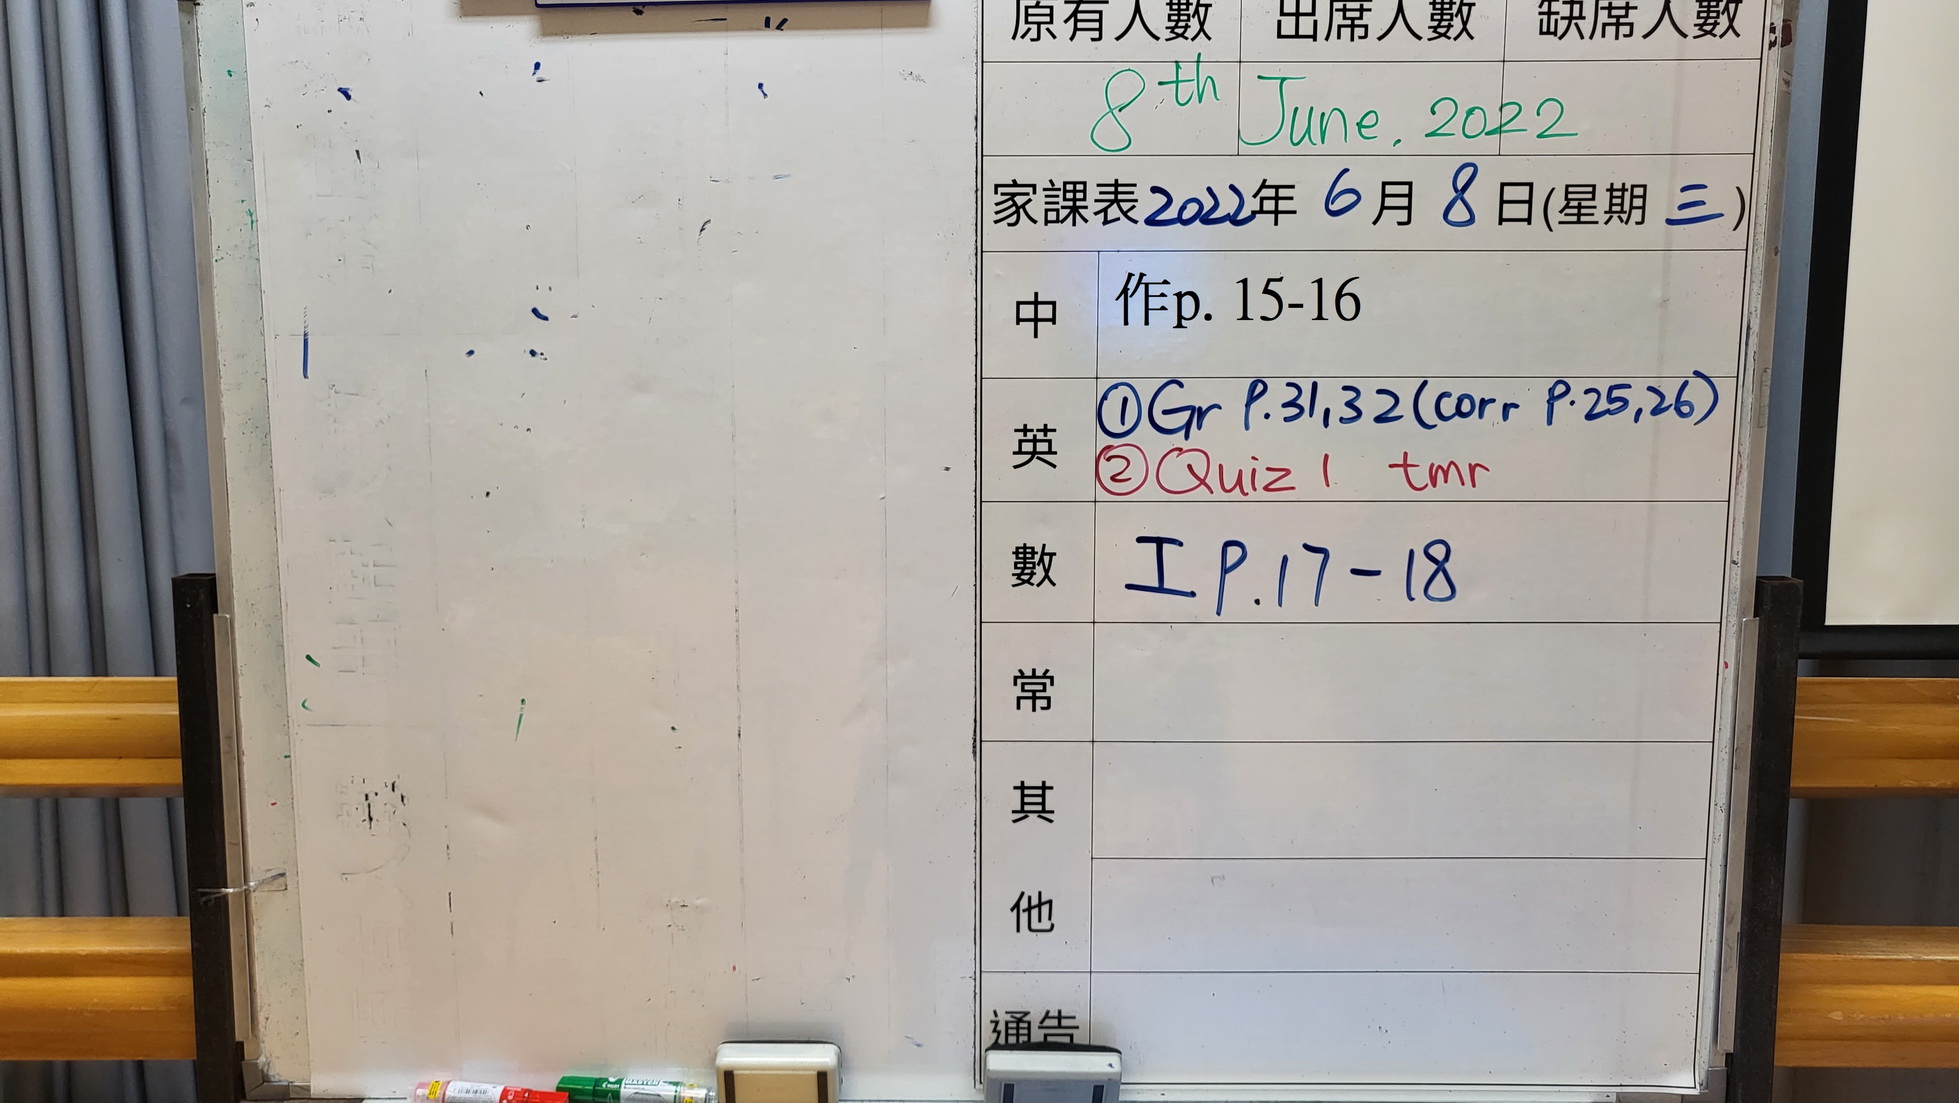 原有人數 出席人數 缺席人數
8th June, 2022
家課表2022年 6月 8日(星期 三)
中 作p. 15-16
英 ①Gr P.31,32(corr P.25,26)
②Quiz 1 tmr
數 工 P.17-18
常
其
他
通告